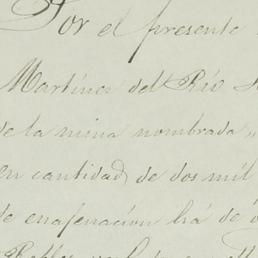 Por el presente
Martínez del Río
de la mina nombrada
en cantidad de dos mil
de enagenacion há de